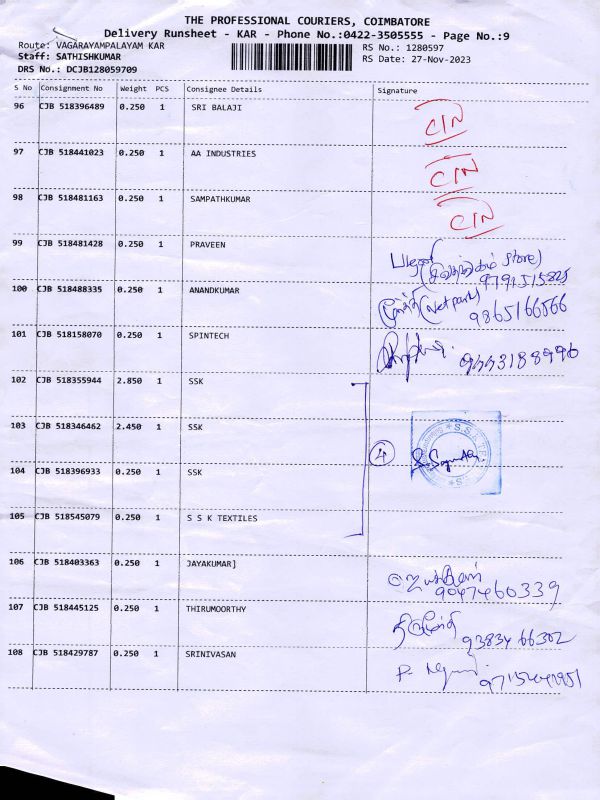 THE PROFESSIONAL COURIERS, COIMBATORE
Delivery Runsheet - KAR - Phone No.:0422-3505555 - Page No.:9
Route: VAGARAYAMPALAYAM KAR
RS No.: 1280597
Staff: SATHISHKUMAR
RS Date: 27-Nov-2023
DRS No.: DCJB128059709
S No Consignment No Weight PCS Consignee Details Signature
96 CJB 518396489 0.250 1 SRI BALAJI
CIN
97 CJB 518441023 0.250 1 AA INDUSTRIES
CIN
98 CJB 518481163 0.250 1 SAMPATHKUMAR
CIN
99 CJB 518481428 0.250 1 PRAVEEN
Store)
100 CJB 518488335 0.250 1 ANANDKUMAR
9865166566
101 CJB 518158070 0.250 1 SPINTECH
9443188990
102 CJB 518355944 2.850 1 SSK
103 CJB 518346462 2.450 1 SSK
4
104 CJB 518396933 0.250 1 SSK
105 CJB 518545079 0.250 1 S S K TEXTILES
106 CJB 518403363 0.250 1 JAYAKUMAR]
9047460339
107 CJB 518445125 0.250 1 THIRUMOORTHY
திருமூர்த்தி
9383466302
108 CJB 518429787 0.250 1 SRINIVASAN